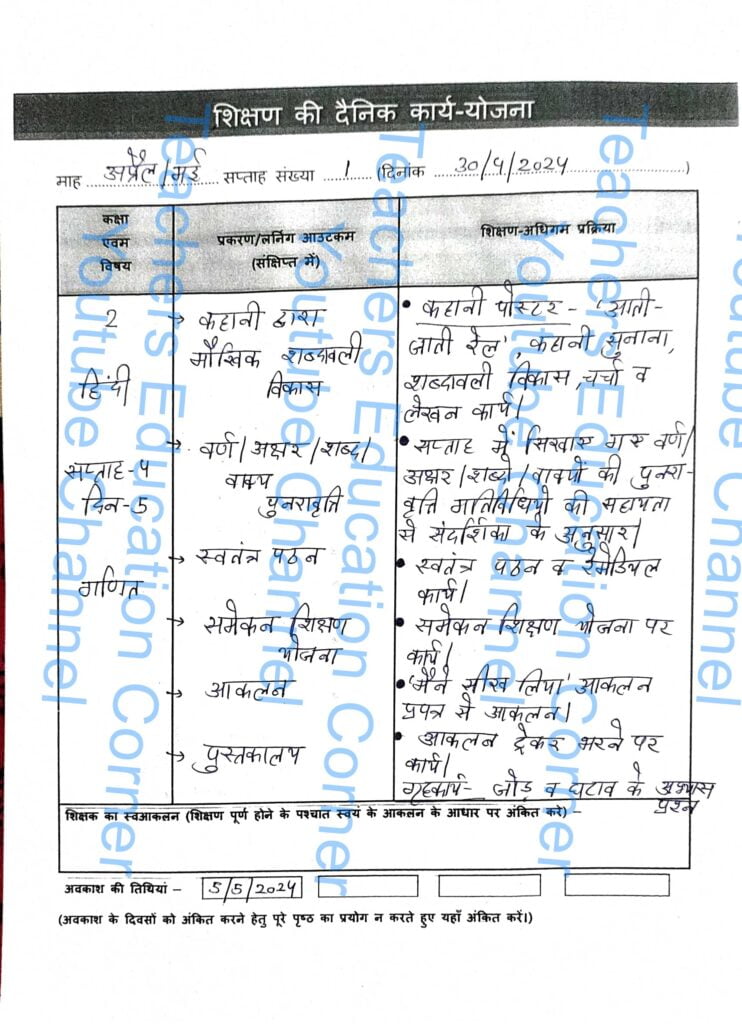 शिक्षण की दैनिक कार्य-योजना
माह अप्रैल/मई सप्ताह संख्या 1 (दिनांक 30/4/2024)
कक्षा
एवम
विषय
प्रकरण/लर्निंग आउटकम
(संक्षिप्त में)
शिक्षण-अधिगम प्रक्रिया
2
हिंदी
सप्ताह-4
दिन-5
गणित
→ कहानी द्वारा
मौखिक शब्दावली
विकास
→ वर्ण/अक्षर/शब्द/
वाक्य
पुनरावृत्ति
→ स्वतंत्र पठन
→ समेकन शिक्षण
योजना
→ आकलन
→ पुस्तकालय
• कहानी पोस्टर - 'आती-
जाती रेल', कहानी सुनाना,
शब्दावली विकास, चर्चा व
लेखन कार्य।
• सप्ताह में सिखाए गए वर्ण/
अक्षर/शब्दो/वाक्यों की पुनरा-
वृत्ति गतिविधियो की सहायता
से संदर्शिका के अनुसार।
• स्वतंत्र पठन व रेमेडियल
कार्य।
• समेकन शिक्षण योजना पर
कार्य।
• 'मैंने सीख लिया' आकलन
प्रपत्र से आकलन।
• आकलन ट्रेकर भरने पर
कार्य।
गृहकार्य- जोड़ व घटाव के अभ्यास
प्रश्न
शिक्षक का स्वआकलन (शिक्षण पूर्ण होने के पश्चात स्वयं के आकलन के आधार पर अंकित करे) -
अवकाश की तिथियां - 5/5/2024
(अवकाश के दिवसों को अंकित करने हेतु पूरे पृष्ठ का प्रयोग न करते हुए यहाँ अंकित करें।)
Teachers Education Corner
Youtube Channel
Teachers Education Corner
Youtube Channel
Teachers Education Corner
Youtube Channel